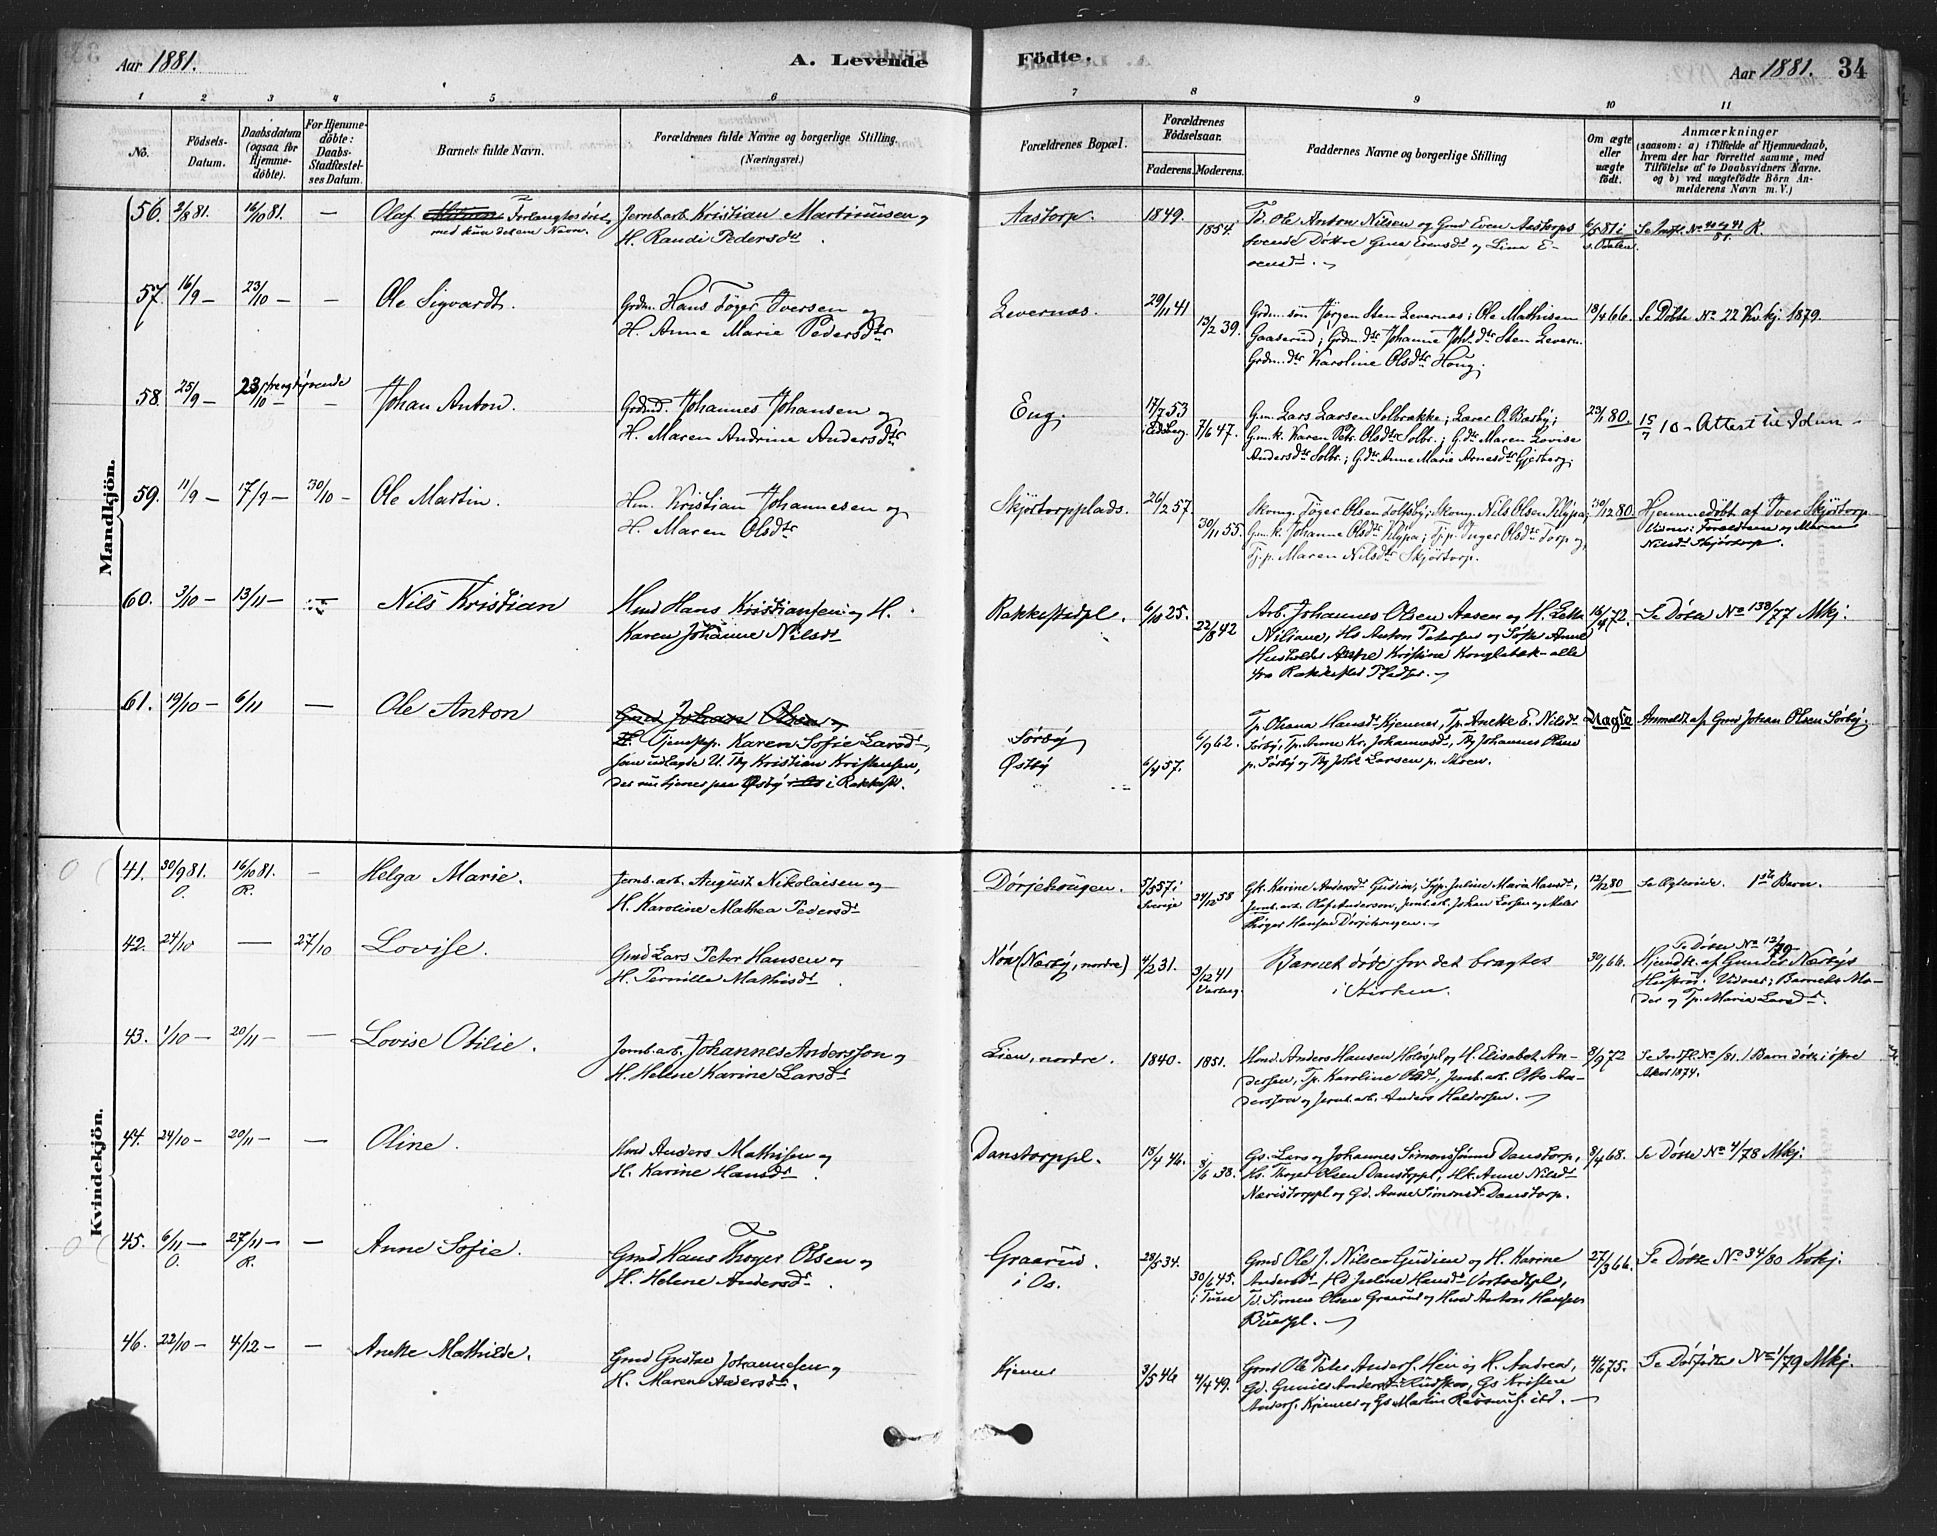 Aar 1881.
A. Levende
Födte.
Aar 1881. 34
1 2 3 4 5 6 7 8 9 10 11
No.
Födsels-
Datum.
Daabsdatum
(ogsaa for
Hjemme-
döbte).
For Hjemme-
döbte:
Daabs-
Stadfæstel-
ses Datum.
Barnets fulde Navn.
Forældrenes fulde Navne og borgerlige Stilling.
(Næringsvei.)
Forældrenes Bopæl.
Forældrenes
Födselsaar.
Faderens. Moderens.
Faddernes Navne og borgerlige Stilling
Om ægte
eller
uægte
födt.
Anmærkninger
(saasom: a) i Tilfælde af Hjemmedaab,
hvem der har forrettet samme, med
Tilföielse af to Daabsvidners Navne.
og b) ved uægtefödte Börn An-
melderens Navn m. V.)
Mandkjön.
56. 2/8 81. 16/10 81. — Olaf Forlangtes døbt
med kun det ene Navn.
Jernb.arb. Kristian Martinusen og
H. Randi Pedersdtr.
Aastorp. 1849. 1854.
Ole Anton Nilsen og Gmd Even Aastorps
Gina Evensdt og Lina E-
vensdt.
R.
57. 16/9 — 23/10 — — Ole Sigvardt.
Grdm. Hans Tøger Iversen og
H. Anne Marie Pedersdtr
Levernæs. 29/11 41 13/2 39.
Grdm. søn Jørgen Sten Levernæs; Ole Mathisen
Gaaserud; Grdm.dtr Johanne Joh.dtr Sten Levern.
Grdm.dtr Karoline Olsdtr Houg.
18/4 66. Se Døbte No 22 Kv.kj. 1879.
58. 25/9 — 23/10 — — Johan Anton.
Johannes Johansen og
H. Maren Andrine Andersdtr
Eng. 17/7 53 7/6 47.
Gm. Lars Larsen Solbrække; Lærer O. Bæsby;
Gm.k. Karen Ptr. Olsdtr Solbr.; G.dtr Maren Lovise
Andersdtr Solbr.; G.dtr Anne Marie Arnesdtr Gjerberg.
80. 15/7 10 — Attest til
59. 11/9 — 17/9 — 30/10 — Ole Martin.
Hm. Kristian Johannesen og
H. Maren Olsdtr
Skjørtorpplads. 26/2 57. 30/11 55.
Skomg. Tøger Olsen Skomg. Nils Olsen Klypa;
Gm.k. Johanne Olsdtr Klypa; Tj.p. Inger Olsdtr Torp og
Tj.p. Maren Nilsdtr Skjørtorp.
30/12 80. Hjemmedøbt af Iver Skjørtorp
Vidner: Forældrene og Maren
Nilsdt Skjørtorp.
60. 3/10 — 13/11 — — Nils Kristian
Hmd Hans Kristiansen og H.
Karen Johanne Nilsdt
Rakkestadpl. 6/10 25. 22/8 42
Arb. Johannes Olsen Aasen og H.
Anton Petersen og
Kristine Konglebæk — alle
fra Rakkestad
16/4 72. Se Døbte No 138/77 Mkj.
61. 19/10 — 6/11 — Ole Anton
Gmd Johan Olsen og
Tjenestep. Karen Sofie Larsdt,
som udlagte U. Tky Kristian Kristensen,
der nu tjener paa Østby i Rakkest.
Sørby
Østby 6/9 62. 6/4 57.
Tp. Oleana Hansdt Kjennes, Tp. Anette E. Nilsdt
Sørby, Tp. Anne Kr. Johannesdt, Tky Johannes Olsen
p. Sørby og Tky Joh. Larsen p. Moen.
Uægte Anmeldt af Gmd Johan Olsen Sørby.
Kvindekjön.
41. 30/9 81. 16/10 81. — Helga Marie.
O. R.
Jernb.arb. August Nikolaisen og
H. Karoline Mathea Pedersdt
Dørjehougen. 5/5 57 i
Sverige 24/12 58
Gk. Karine Andersdt Gudim, Tjp. Juline Maria Hansdt,
Jernb. arb. Olaf Anderson, Jernb. arb. Johan Larsen og Maler
Thøger Hansen Dørjehougen.
12/12 80 1ste Barn.
42. 24/10 — 27/10 Lovise.
Gmd Lars Peter Hansen og
H. Pernille Mathisdt.
(Næsby, nordre) 4/2 31. 3/12 41
Barnet døde før det bragtes
i Kirken.
30/1 66. Se Døbte No 12/79
Hjemdt. af Gunder Næsbys
Hustru. Vidner: Barnets Mo-
der og Tp. Maria Larsdt.
43. 1/10 — 20/11 — — Lovise Otilie.
Jernb.arb. Johannes Andersson og
H. Helene Karine Larsdt
Lien, nordre. 1840. 1851.
Hmd. Anders Hansen og H. Elisabet An-
dersen, Tp. Karoline Olsdt, Jernb. arb. Otto An-
dersson og Jernb. arb. Anders Haldorsen.
8/9 72 1 Barn døbt i øfre
1874.
44. 24/10 — 20/11 — — Oline.
Hmd Anders Mathisen og
H. Karine Hansdt.
Danstorppl. 13/4 46. 8/6 38.
Gs. Lars og Johannes Simonssønner Danstorp,
Hs. Thøger Olsen Danstorppl, Hk. Anne Nilsdt
Næristorppl og Gd. Anne Simonsdt Danstorp.
8/4 68. Se Døbte No 4/78 Mkj.
45. 6/11 — 27/11 — — Anne Sofie.
O. R.
Gmd Hans Thøger Olsen og
H. Helene Andersdt.
Graarud
i Os. 28/5 34. 30/6 45.
i Tune
Gmd Ole J. Nilsen Gudim og H. Karine
Andersdt, Hd Juline Hansdt
Simen Olsen Graarud og Hmd Anton Hansen
27/3 66. Se Døbte No 34/80 Kvkj.
46. 22/10 — 4/12 — — Anette Mathilde.
Gmd Gustav Johannesen og
H. Maren Andersdt.
Kjennes 3/5 46 4/4 49.
Gmd Ole Peter Anders. Hein og H. Andrea,
Gd. Gunild Andersdt Gs Kristen
Anders. Kjennes og Gs Martin
4/6 75. Se Døbte No 1/79 Mkj.